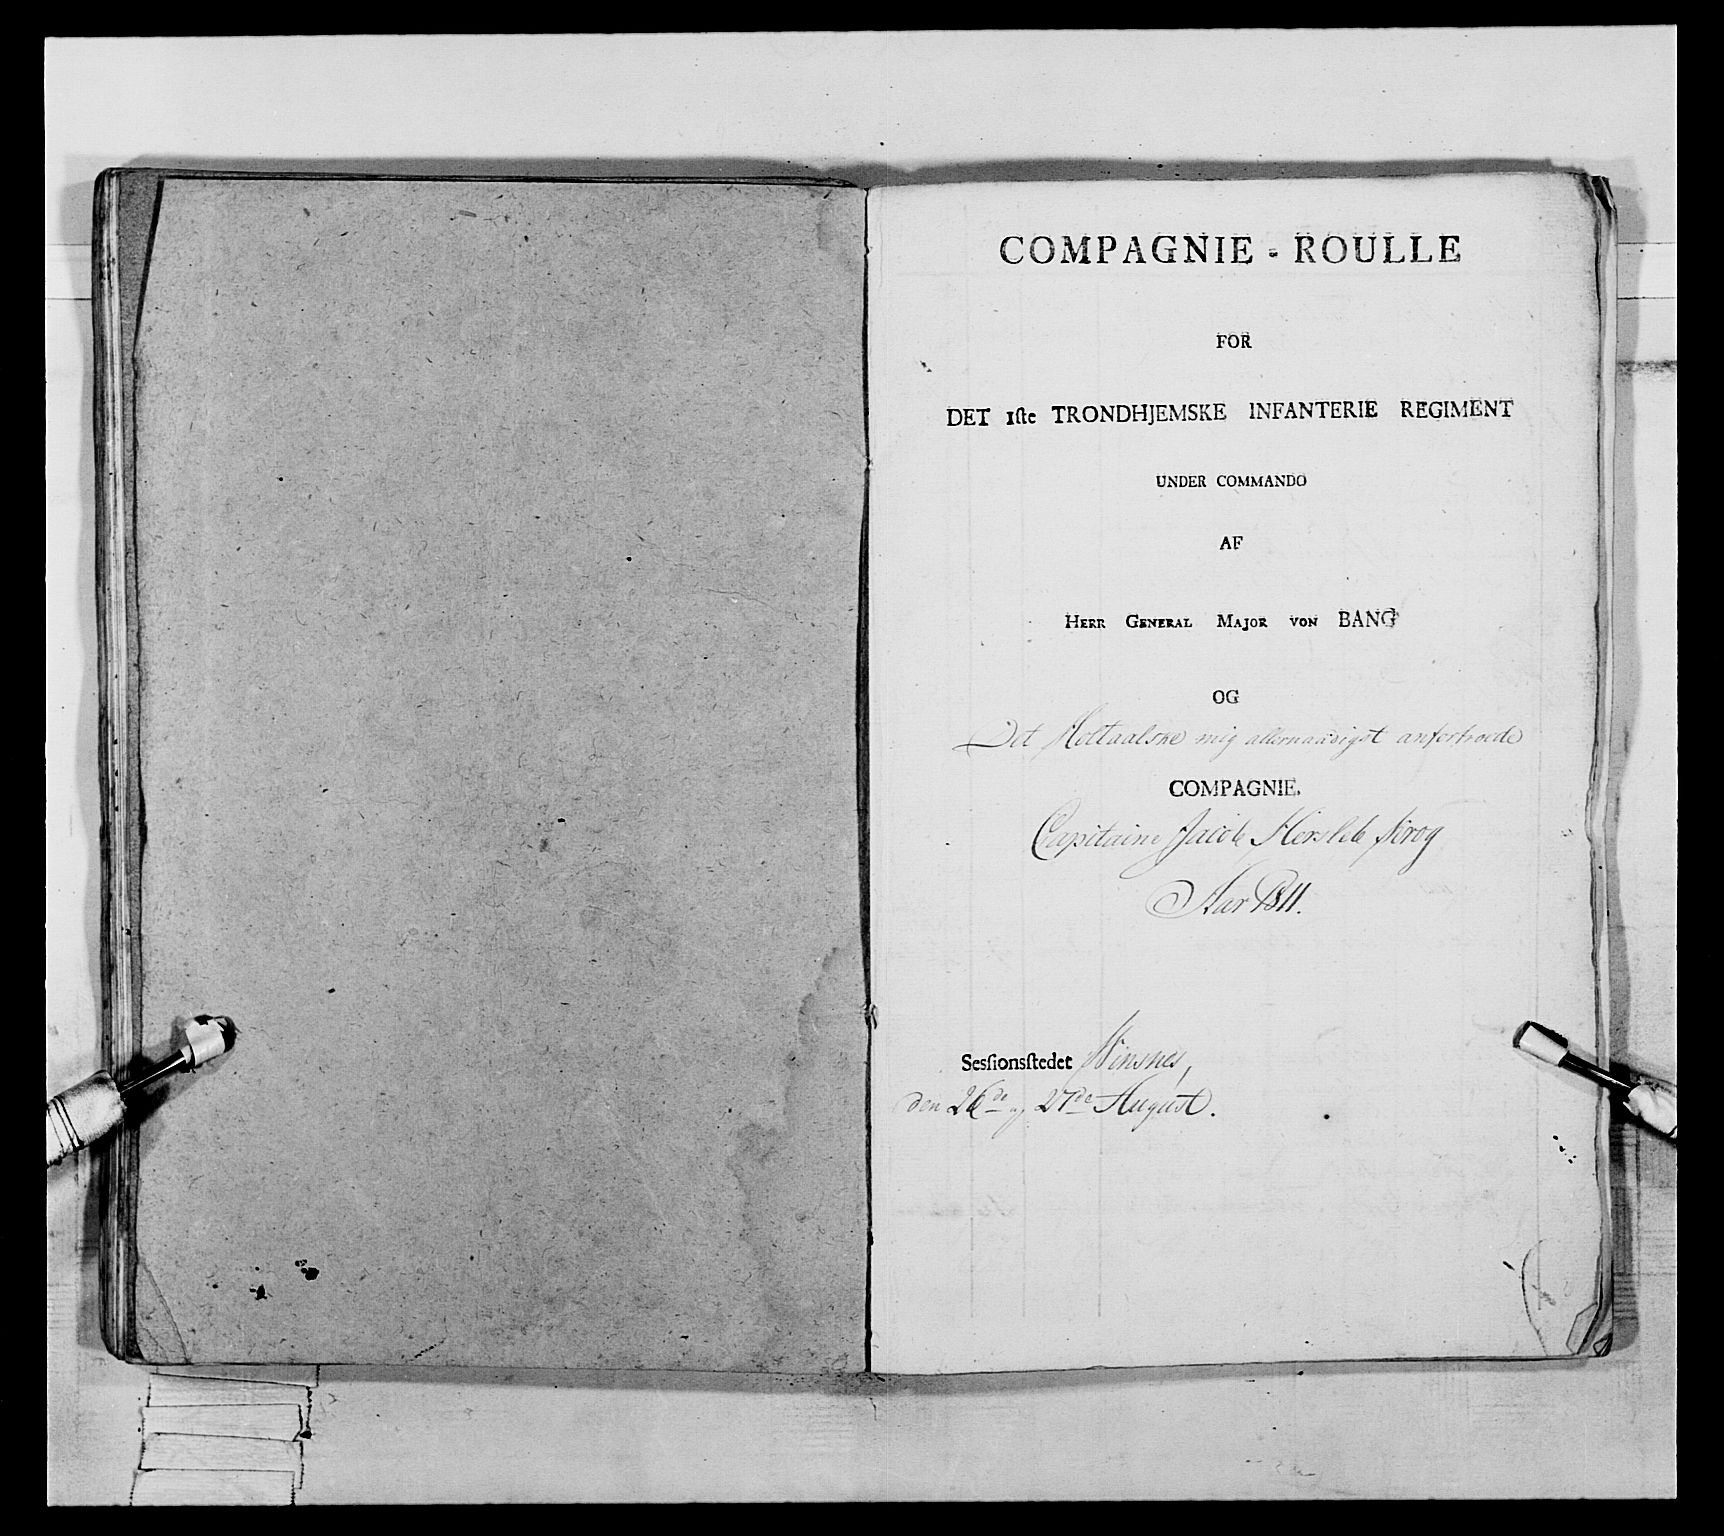 COMPAGNIE - ROULLE
FOR
DET 1ſte TRONDHJEMSKE INFANTERIE REGIMENT
UNDER COMMANDO
AF
HERR GENERAL MAJOR VON BANG
OG
Det Holtaalske mig allernaadigst anfortroede
COMPAGNIE.
Capitaine Jacob Hersleb Krog
Aar 1811.
Sesſionsſtedet Winsnes,
den 26de og 27de August.